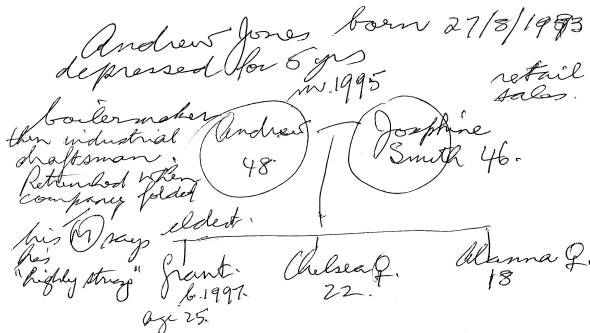 Andrew Jones born 27/8/1973
depressed for 6 yrs
m. 1995
retail
sales.
boilermaker
then industrial
draftsman.
Retrenched when
company folded
Andrew
48
Josephine
Smith 46.
his M says
he's
"highly strung"
eldest.
Grant.
b. 1997.
age 25.
Chelsea ♀.
22.
Alanna ♀.
18